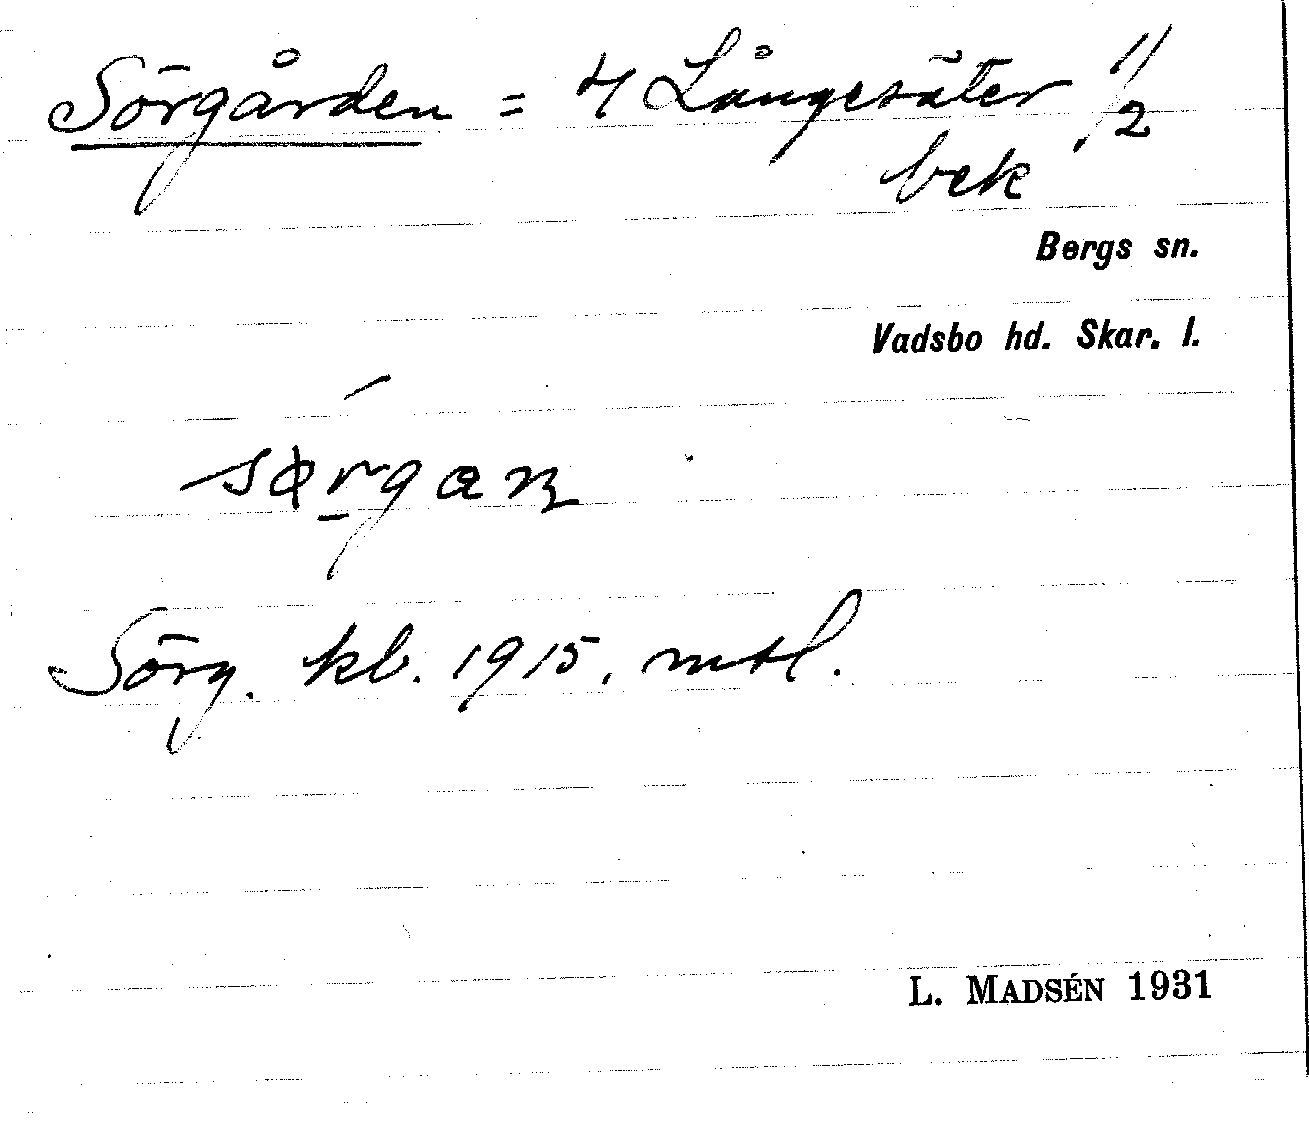 Sörgården = 4 Långesäter 1/2
bek
Bergs sn.
Vadsbo hd. Skar. l.
Sörg. kb. 1915, mtl.
L. MADSÉN 1931